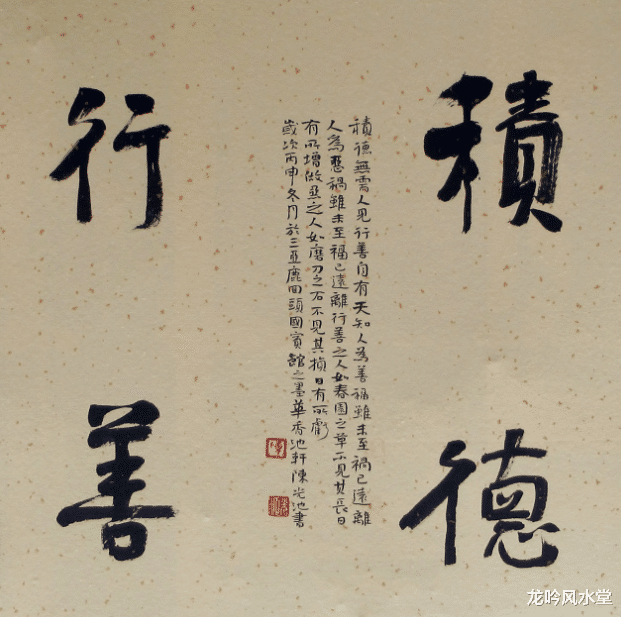 積德
行善
積德無需人見行善自有天知人為善福雖未至禍已遠離
人為惡禍雖未至福已遠離行善之人如春園之草不見其長日
有所增做惡之人如磨刀之石不見其損日有所虧
歲次丙申冬月於三亞鹿回頭國賓館之墨華香池軒陳光池書
龙吟风水堂